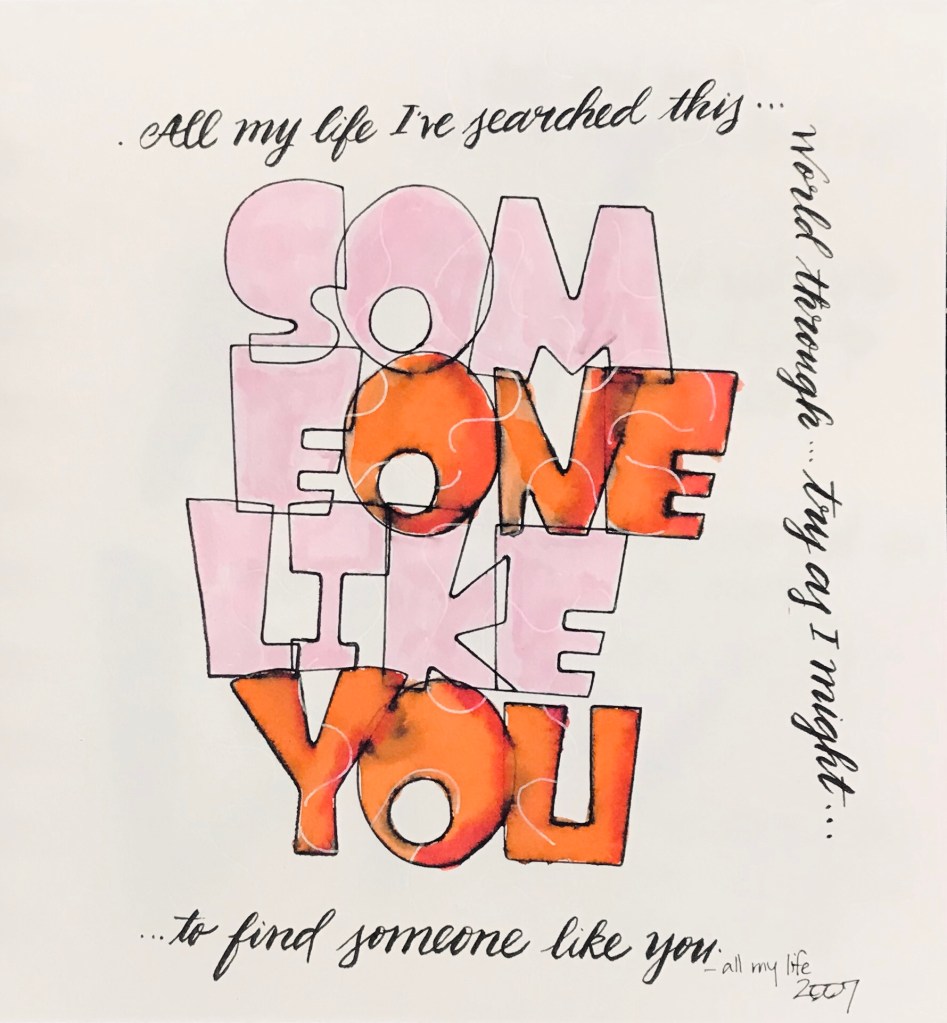 All my life I've searched this...
World through... try as I might...
SOM
EONE
LIKE
YOU
...to find someone like you.
- all my life